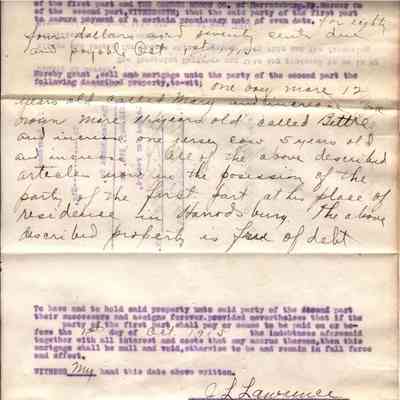 of the second part, WITNESSETH; that the party of the first part
to secure payment of a certain promissory note of even date, for eighty
four dollars and seventy cents due
and payable Oct
hereby grant, sell and mortgage unto the party of the second part the
following described property, to-wit; one bay mare 12
years old called Mary and increase one
brown mare 11 years old called Bettie
and increase one jersey cow 5 years old
and increase All of the above described
articles now in the posession of the
party of the first part at his place of
residence in Harrodsburg The above
described property is free of debt
To have and to hold said property unto said party of the second part
their successors and assigns forever, provided nevertheless that if the
party of the first part, shall pay or cause to be paid on or be-
fore the 1st day of Oct 1915 the indebtness aforesaid
together with all interest and costs that may accrue thereon, then this
mortgage shall be null and void, otherwise to be and remain in full force
and effect.
WITNESS My hand this date above written.
C L Lawrence